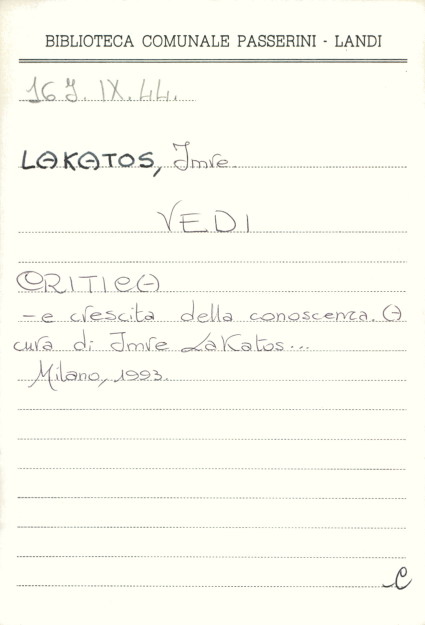 BIBLIOTECA COMUNALE PASSERINI - LANDI
16 J. IX. 44.
LAKATOS, Imre
VEDI
CRITICA
- e crescita della conoscenza. A
cura di Imre Lakatos...
Milano, 1993.
C